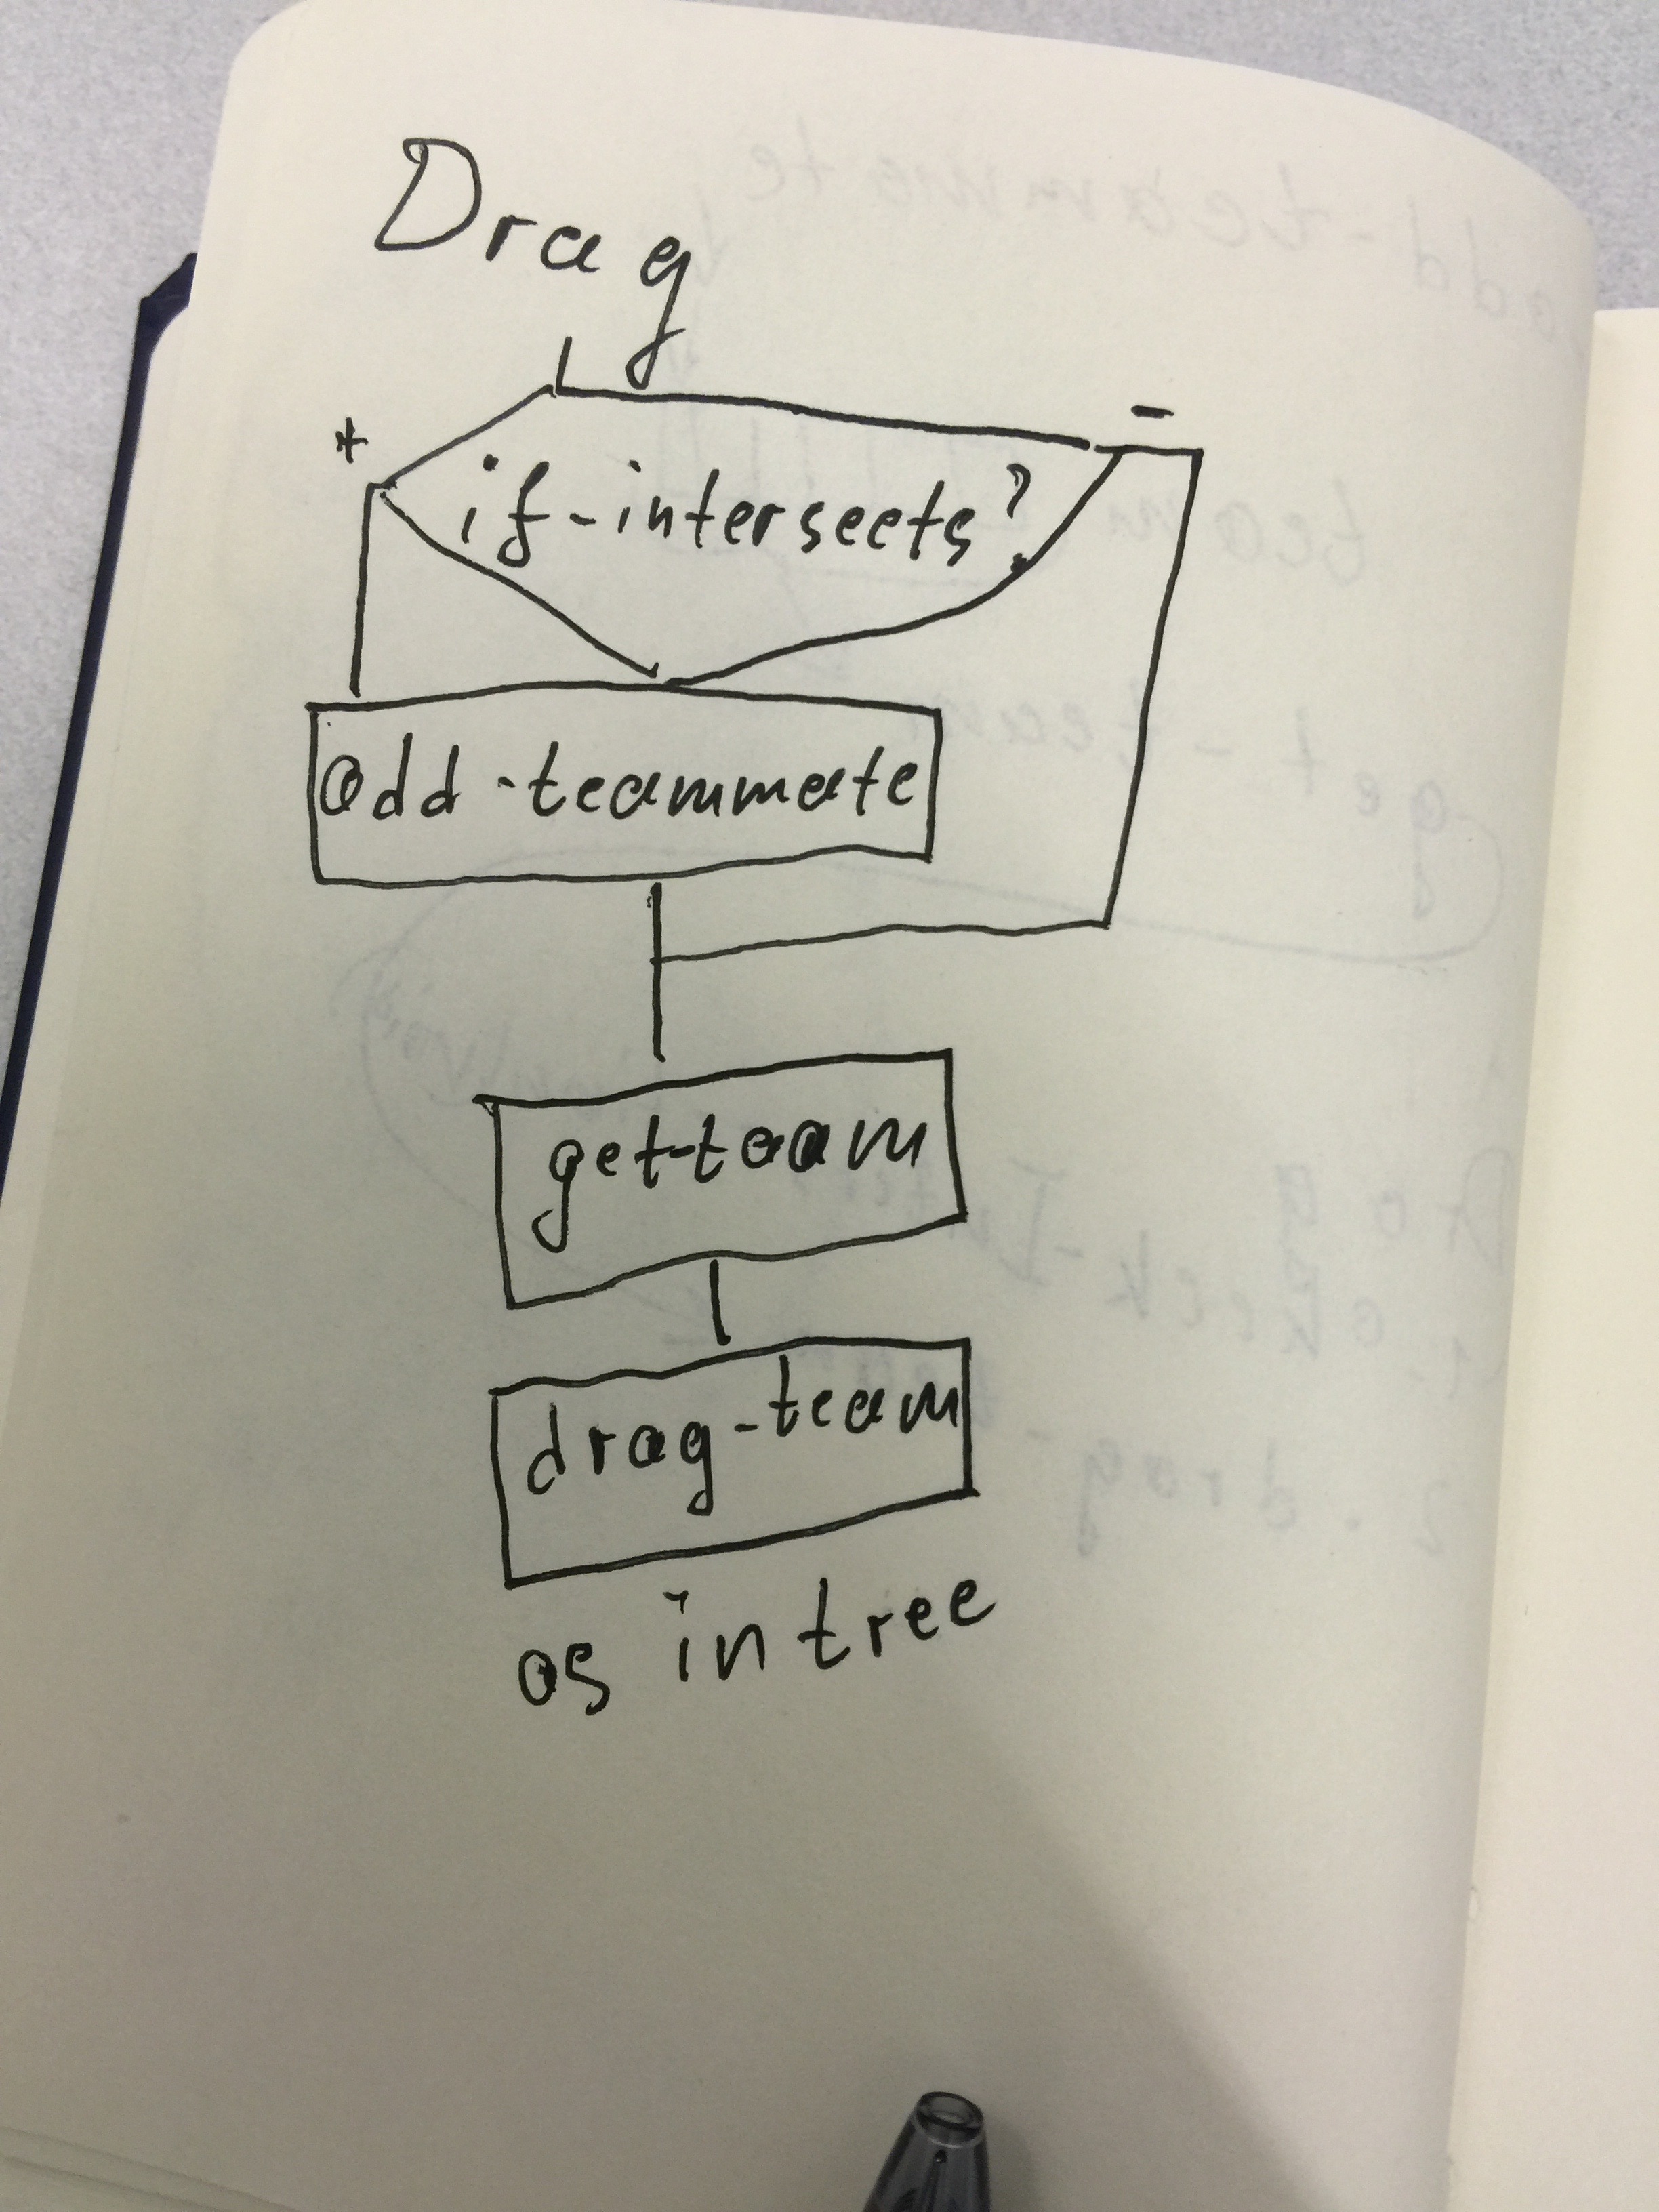 Drag
+ -
if-intersects?
add-teammate
get-team
drag-team
as in tree